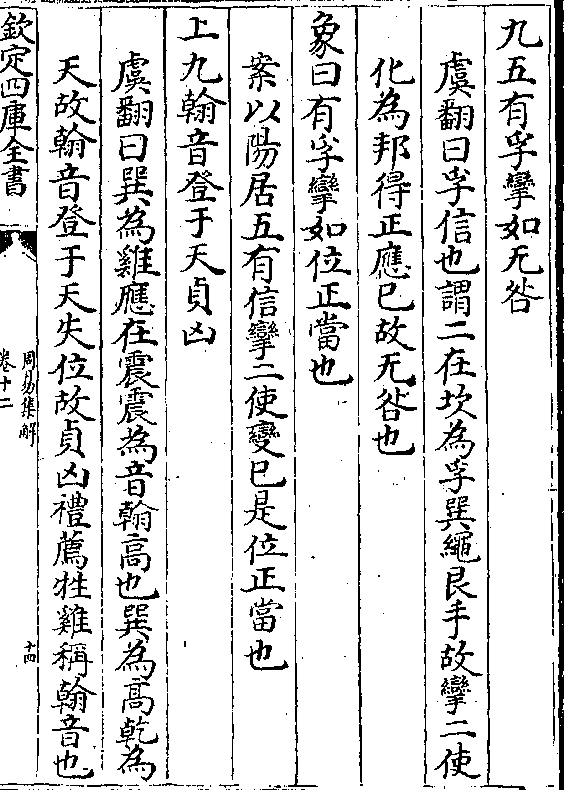 九五有孚攣如无咎
虞翻曰孚信也謂二在坎為孚巽繩艮手故攣二使
化為邦得正應已故无咎也
象曰有孚攣如位正當也
案以陽居五有信攣二使變已是位正當也
上九翰音登于天貞凶
虞翻曰巽為雞應在震震為音翰高也巽為高乾為
天故翰音登于天失位故貞凶禮薦牲雞稱翰音也
欽定四庫全書
周易集解
卷十二
十四